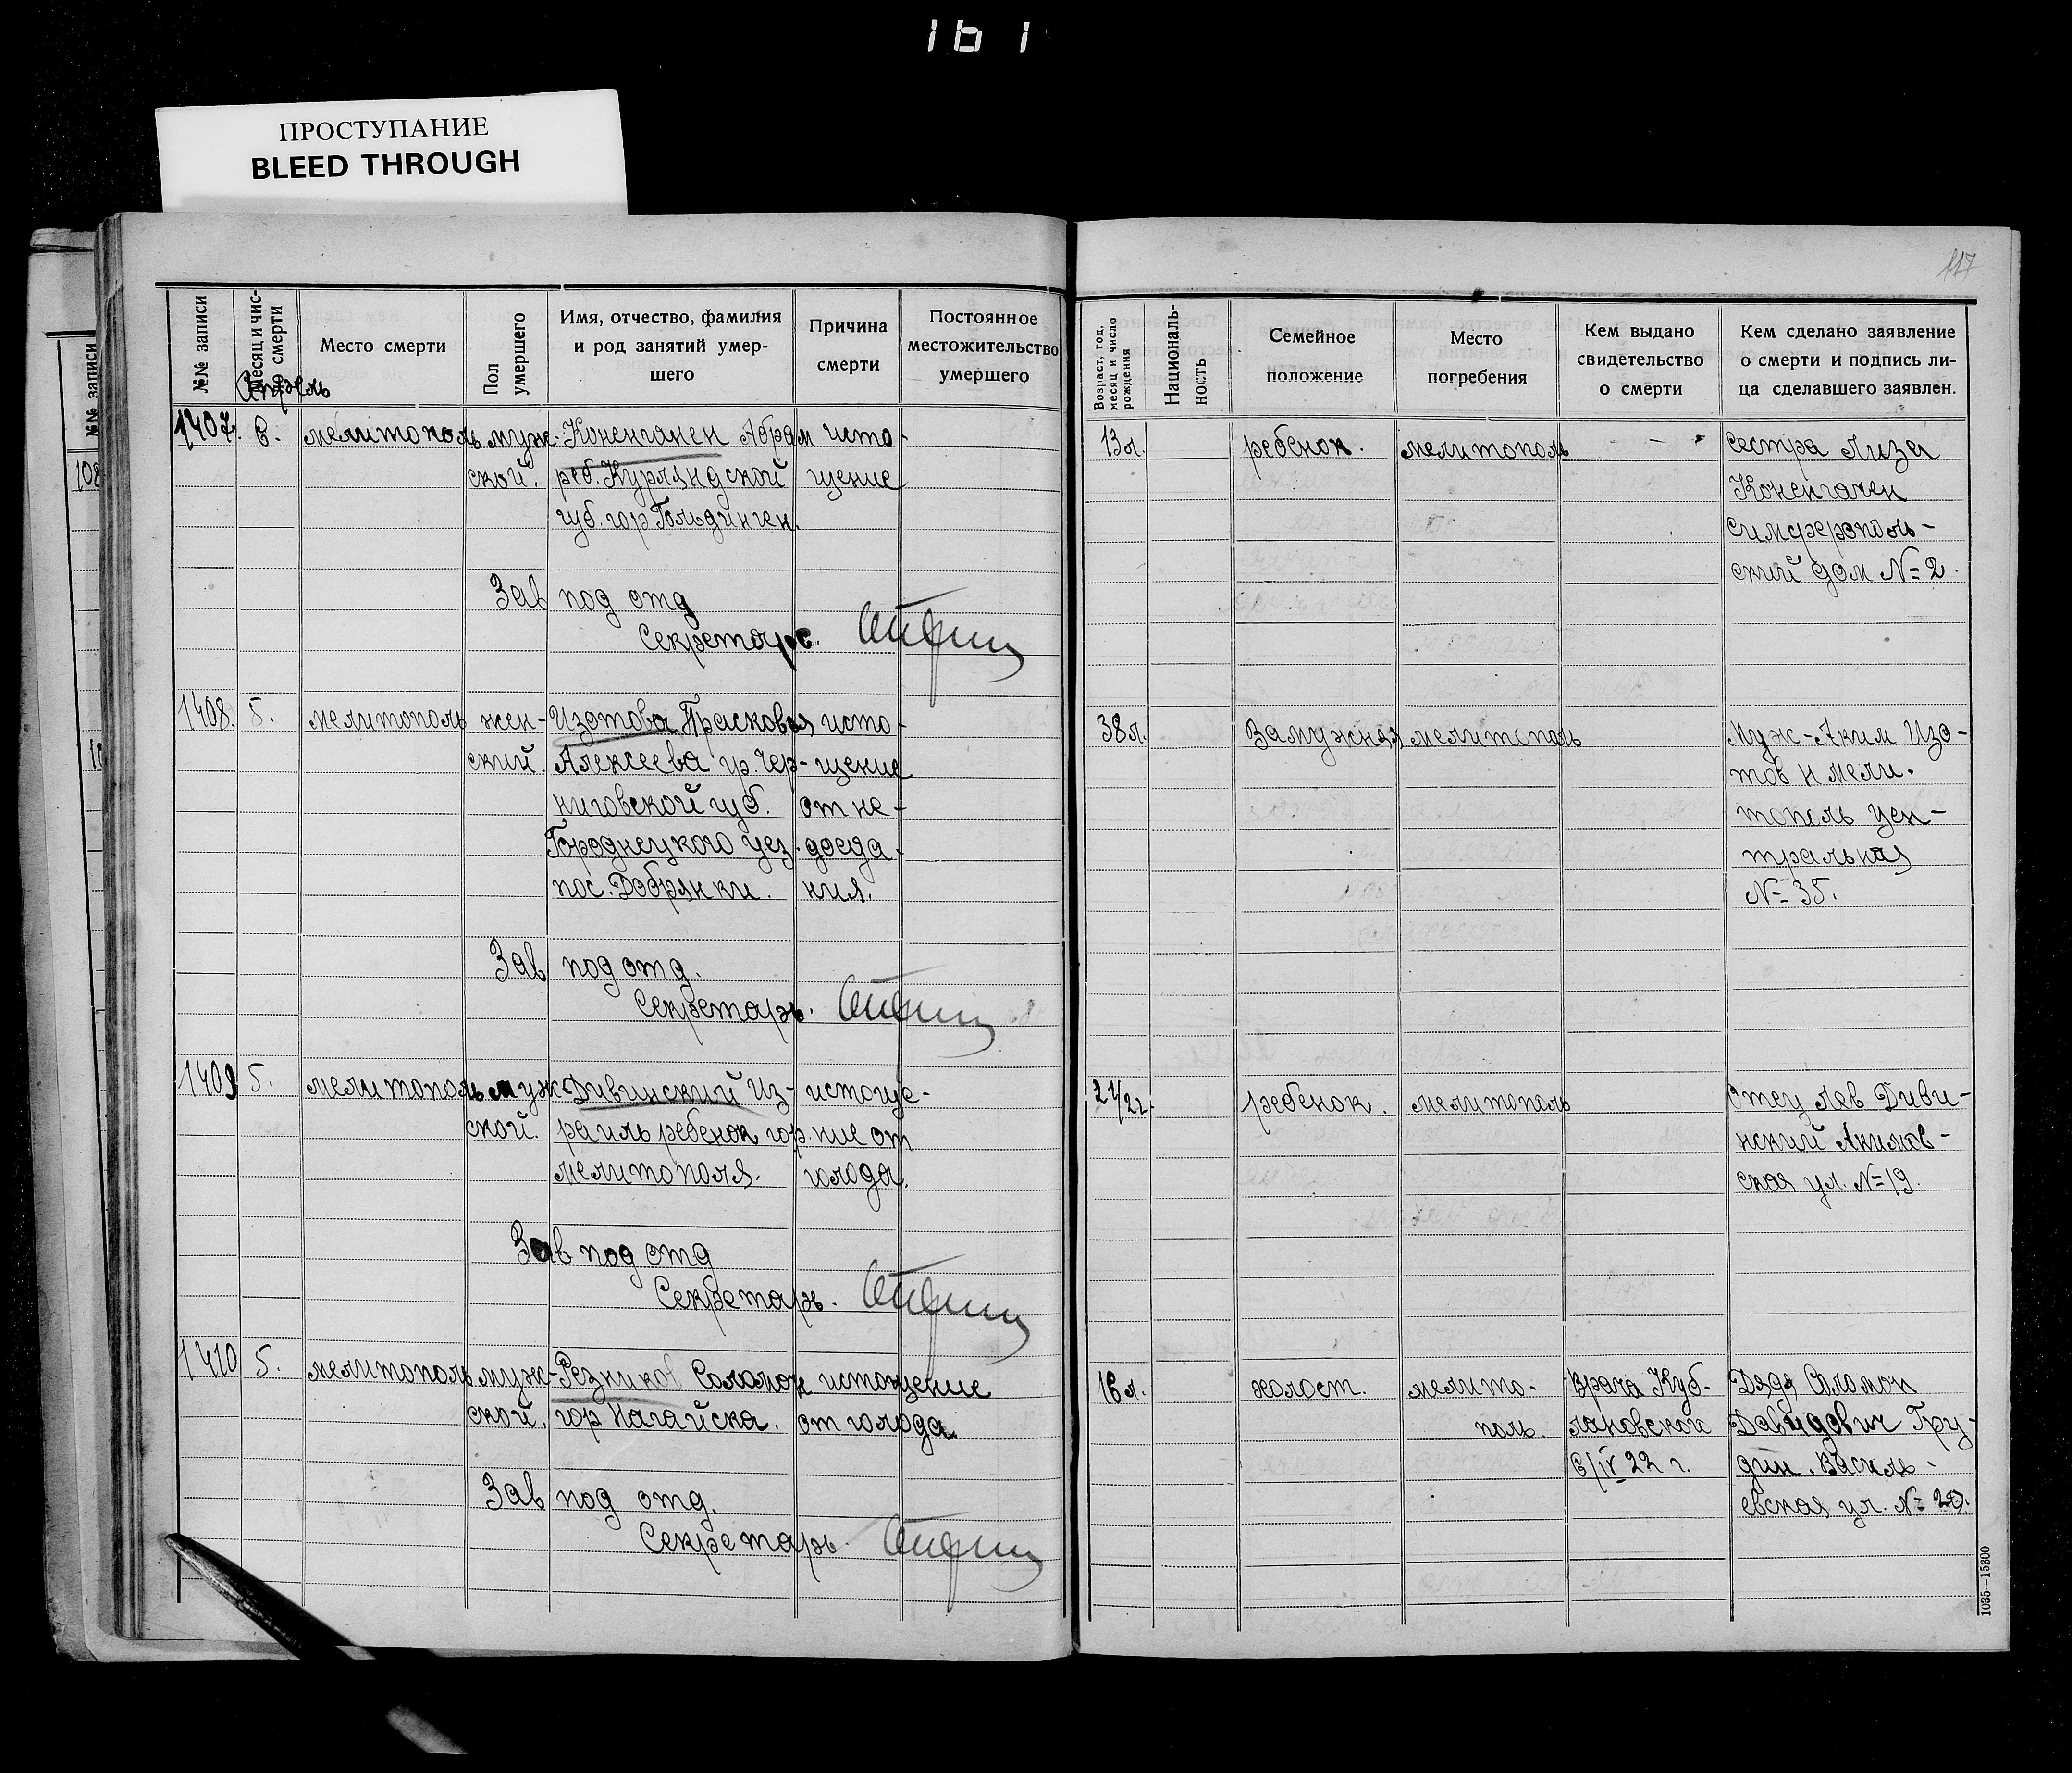 161
ПРОСТУПАНИЕ
BLEED THROUGH
117
№№ записи
Месяц и число смерти
Место смерти
Пол умершего
Имя, отчество, фамилия
и род занятий умер-
шего
Причина
смерти
Постоянное
местожительство
умершего
Возраст, год,
месяц и число
рождения
Националь-
ность
Семейное
положение
Место
погребения
Кем выдано
свидетельство
о смерти
Кем сделано заявление
о смерти и подпись ли-
ца сделавшего заявлен.
№№ записи
Апрель
1407. 6. мелитополь муж- Коненганен Абрам исто- 13 л. ребенок. мелитополь — Сестра Лиза
ской. реб. Курляндской щение Коненганен
губ. гор Гольдинген. Симферополь-
ский дом № 2.
Зав под отд
Секретарь.
1408. 5. мелитополь жен- Изотова Прасковья исто- 38 л. Замужняя мелитополь Муж-Аким Изо-
ский. Алексеева гр. Чер- щение тов н мели.
ниговской губ. от не- тополь Цен-
Городнецкого уез. доеда- тральная
пос. Добрянки. ния. № 35.
Зав под отд.
Секретарь.
1409 5. мелитополь муж- Дивинский Из- истоще- 21/22. ребенок. мелитополь Отец Лев Диви-
ской. раиль ребенок гор. ние от нский Акимов-
мелитополя. голода. ская ул. № 19.
Зав под отд
Секретарь.
1410 5. мелитополь муж- Резников Соломон истощение 16 л. холост. мелито- Врача Куб- Дядя Соломон
ской. гор Нагайска. от голода. поль. лановской Давидович Гру-
6/IV 22 г. дин. Василь-
евская ул. № 20.
Зав под отд.
Секретарь.
1035—15300